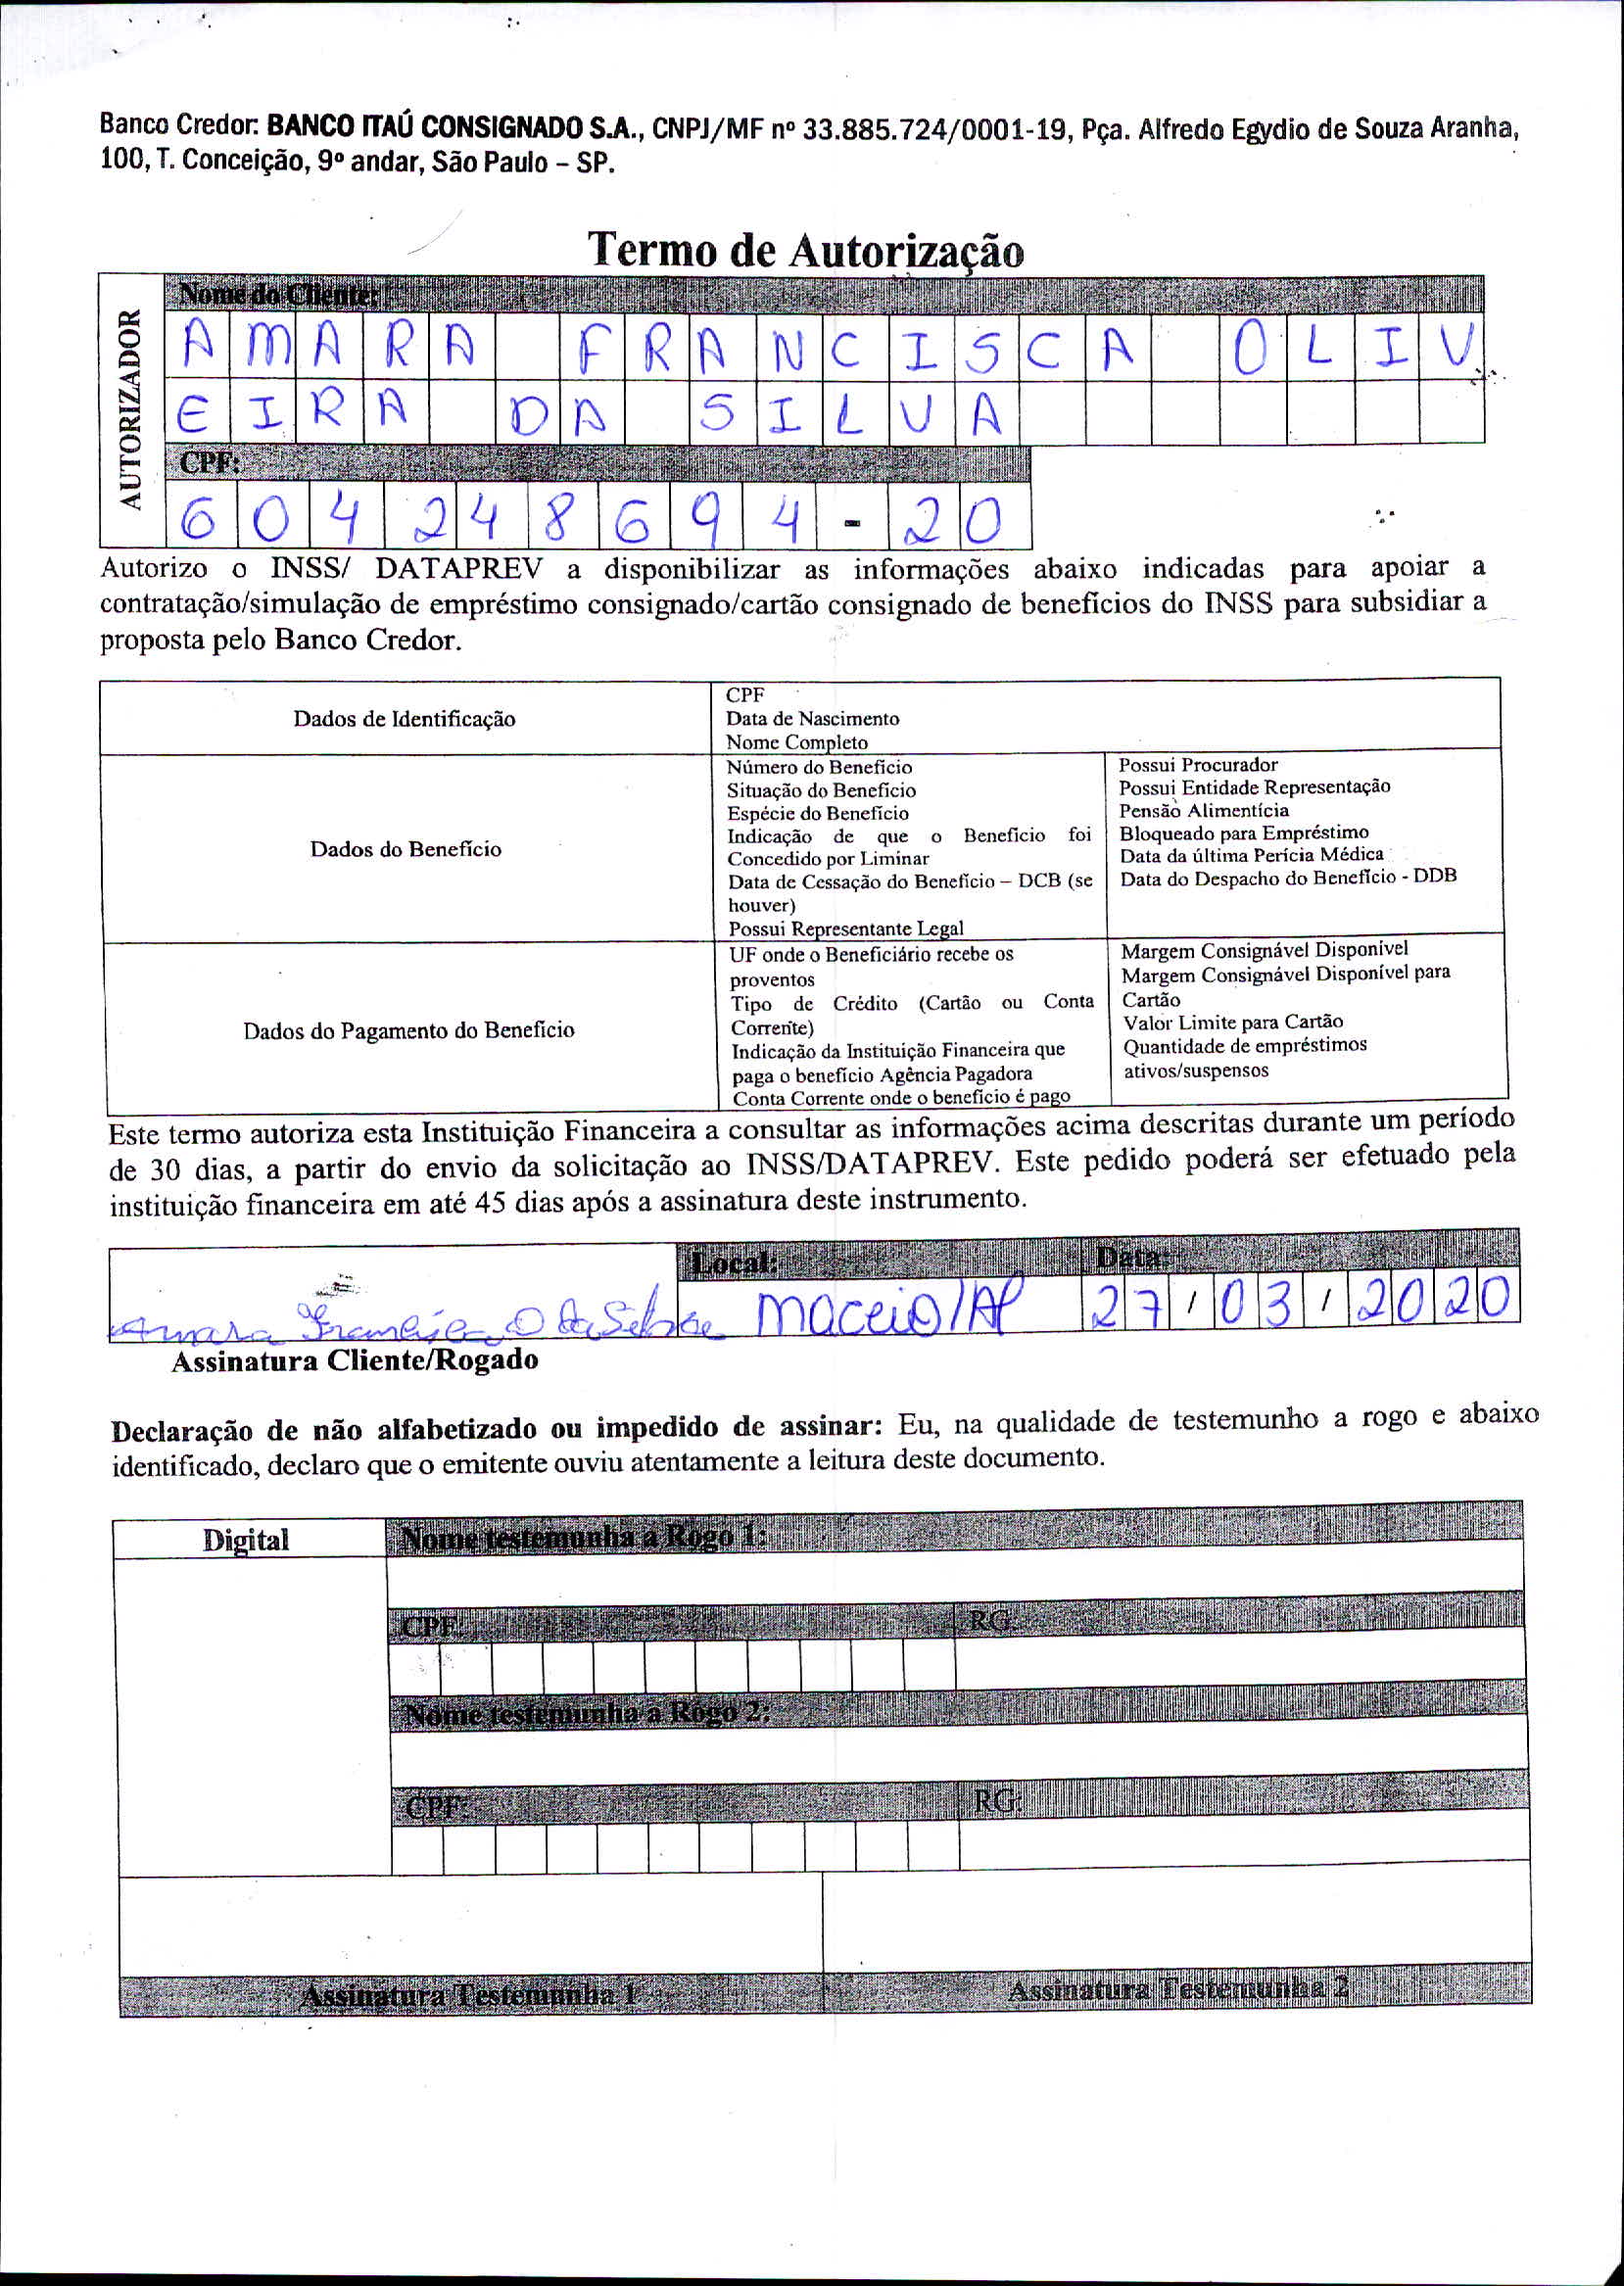 Banco Credor: BANCO ITAÚ CONSIGNADO S.A., CNPJ/MF nº 33.885.724/0001-19, Pça. Alfredo Egydio de Souza Aranha,
100, T. Conceição, 9º andar, São Paulo – SP.
Termo de Autorização
AUTORIZADOR
Nome do Cliente:
AMARA FRANCISCA OLIV
EIRA DA SILVA
CPF:
604248694-20
Autorizo o INSS/ DATAPREV a disponibilizar as informações abaixo indicadas para apoiar a
contratação/simulação de empréstimo consignado/cartão consignado de benefícios do INSS para subsidiar a
proposta pelo Banco Credor.
Dados de Identificação
CPF
Data de Nascimento
Nome Completo
Dados do Benefício
Número do Benefício
Situação do Benefício
Espécie do Benefício
Indicação de que o Benefício foi
Concedido por Liminar
Data de Cessação do Benefício – DCB (se
houver)
Possui Representante Legal
Possui Procurador
Possui Entidade Representação
Pensão Alimentícia
Bloqueado para Empréstimo
Data da última Perícia Médica
Data do Despacho do Benefício - DDB
Dados do Pagamento do Benefício
UF onde o Beneficiário recebe os
proventos
Tipo de Crédito (Cartão ou Conta
Corrente)
Indicação da Instituição Financeira que
paga o benefício Agência Pagadora
Conta Corrente onde o benefício é pago
Margem Consignável Disponível
Margem Consignável Disponível para
Cartão
Valor Limite para Cartão
Quantidade de empréstimos
ativos/suspensos
Este termo autoriza esta Instituição Financeira a consultar as informações acima descritas durante um período
de 30 dias, a partir do envio da solicitação ao INSS/DATAPREV. Este pedido poderá ser efetuado pela
instituição financeira em até 45 dias após a assinatura deste instrumento.
Local: Data:
Amara Francisca O da Silva Maceio/AL 27/03/2020
Assinatura Cliente/Rogado
Declaração de não alfabetizado ou impedido de assinar: Eu, na qualidade de testemunho a rogo e abaixo
identificado, declaro que o emitente ouviu atentamente a leitura deste documento.
Digital
Nome testemunha a Rogo 1:
CPF: RG:
Nome testemunha a Rogo 2:
CPF: RG:
Assinatura Testemunha 1 Assinatura Testemunha 2